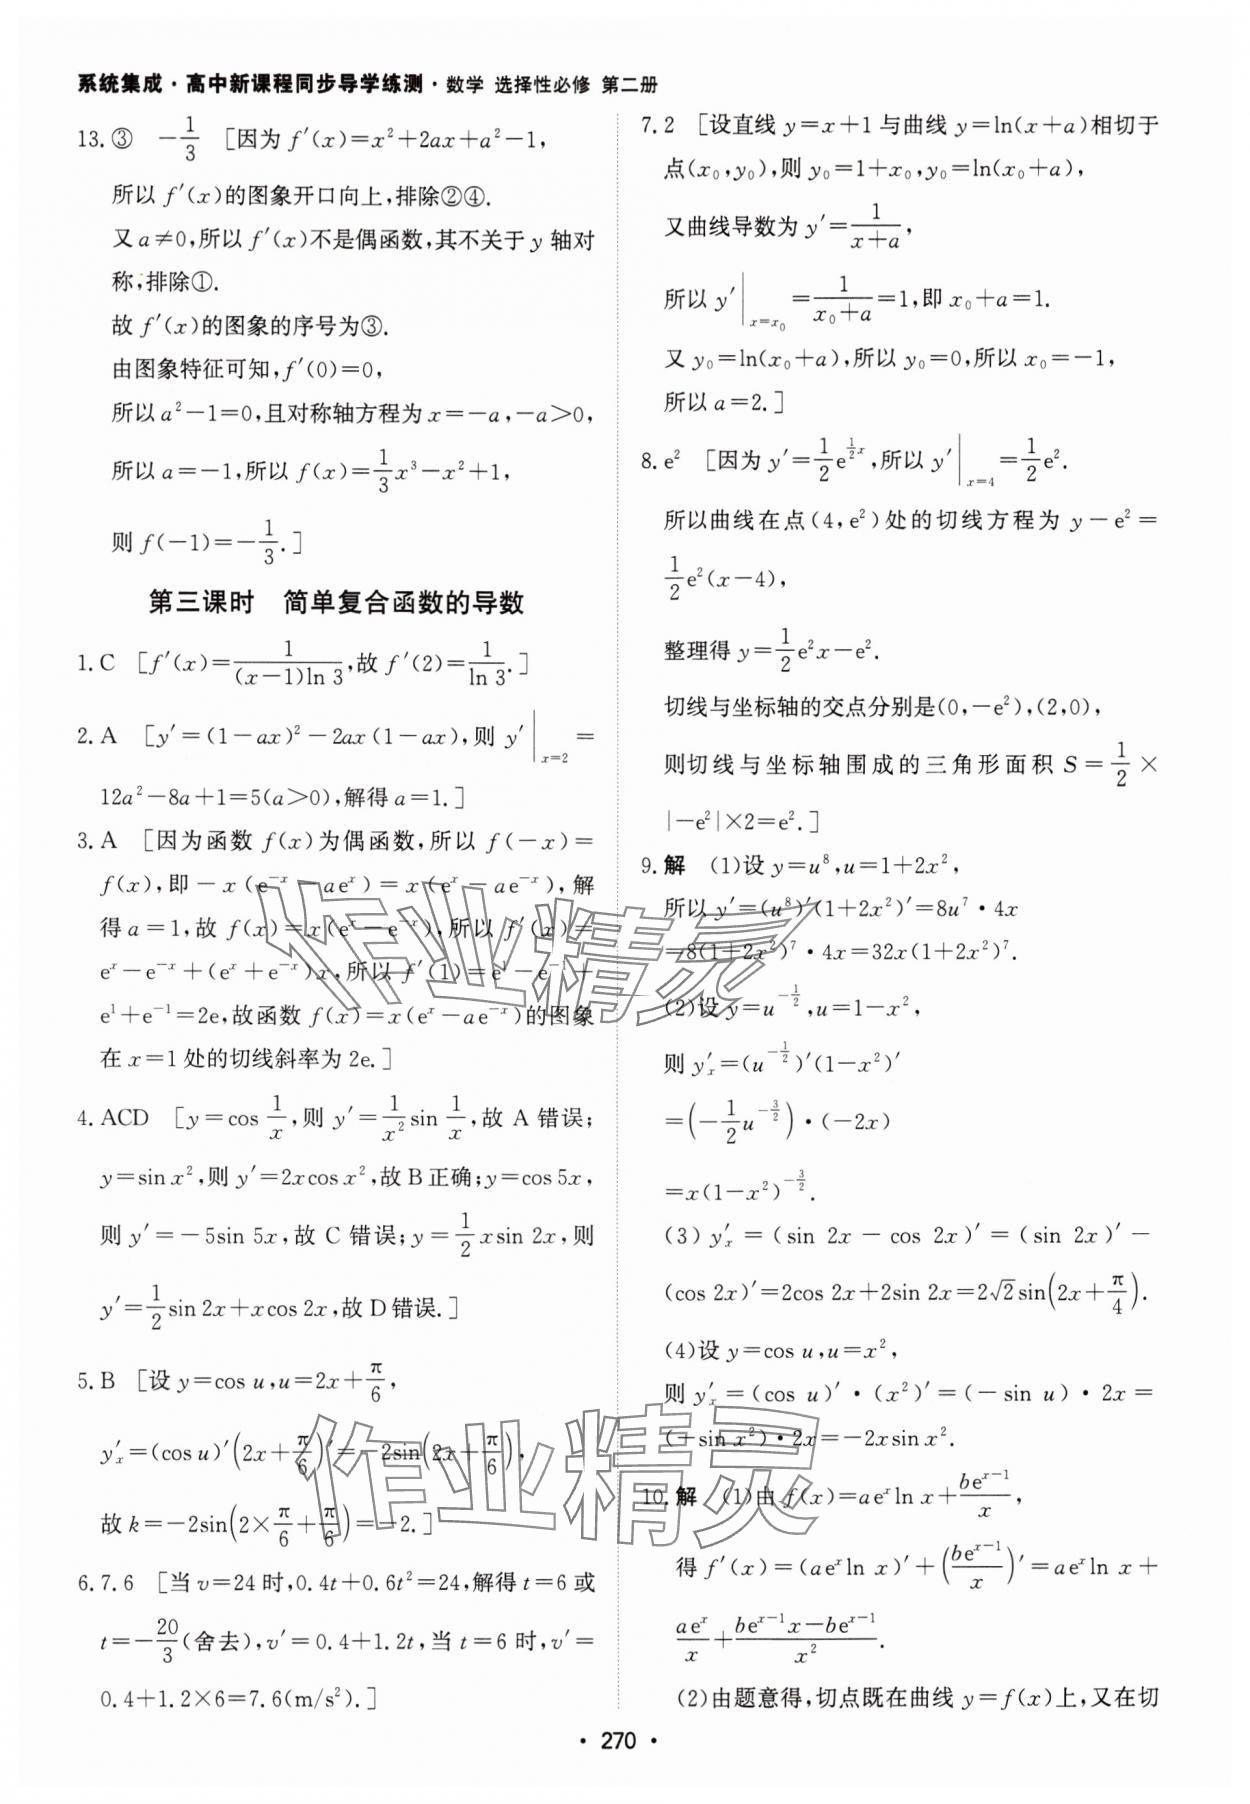 系统集成·高中新课程同步导学练测·数学 选择性必修 第二册
13.③ -1/3 [因为 f′(x)=x²+2ax+a²-1,
所以 f′(x)的图象开口向上,排除②④.
又 a≠0,所以 f′(x)不是偶函数,其不关于 y 轴对
称,排除①.
故 f′(x)的图象的序号为③.
由图象特征可知,f′(0)=0,
所以 a²-1=0,且对称轴方程为 x=-a,-a>0,
所以 a=-1,所以 f(x)=1/3x³-x²+1,
则 f(-1)=-1/3.]
第三课时 简单复合函数的导数
1.C [f′(x)=1/((x-1)ln 3),故 f′(2)=1/ln 3.]
2.A [y′=(1-ax)²-2ax(1-ax),则 y′|x=2 =
12a²-8a+1=5(a>0),解得 a=1.]
3.A [因为函数 f(x)为偶函数,所以 f(-x)=
f(x),即-x(e⁻ˣ-aeˣ)=x(eˣ-ae⁻ˣ),解
得 a=1,故 f(x)=x(eˣ-e⁻ˣ),所以 f′(x)=
eˣ-e⁻ˣ+(eˣ+e⁻ˣ)x,所以 f′(1)=e¹-e⁻¹+
e¹+e⁻¹=2e,故函数 f(x)=x(eˣ-ae⁻ˣ)的图象
在 x=1 处的切线斜率为 2e.]
4.ACD [y=cos 1/x,则 y′=1/x² sin 1/x,故 A 错误;
y=sin x²,则 y′=2xcos x²,故 B 正确;y=cos 5x,
则 y′=-5sin 5x,故 C 错误;y=1/2 xsin 2x,则
y′=1/2 sin 2x+xcos 2x,故 D 错误.]
5.B [设 y=cos u,u=2x+π/6,
y′ₓ=(cos u)′(2x+π/6)′=-2sin(2x+π/6),
故 k=-2sin(2×π/6+π/6)=-2.]
6.7.6 [当 v=24 时,0.4t+0.6t²=24,解得 t=6 或
t=-20/3(舍去),v′=0.4+1.2t,当 t=6 时,v′=
0.4+1.2×6=7.6(m/s²).]
7.2 [设直线 y=x+1 与曲线 y=ln(x+a)相切于
点(x₀,y₀),则 y₀=1+x₀,y₀=ln(x₀+a),
又曲线导数为 y′=1/(x+a),
所以 y′|x=x₀ =1/(x₀+a)=1,即 x₀+a=1.
又 y₀=ln(x₀+a),所以 y₀=0,所以 x₀=-1,
所以 a=2.]
8.e² [因为 y′=1/2 e^(1/2 x),所以 y′|x=4 =1/2 e².
所以曲线在点(4,e²)处的切线方程为 y-e²=
1/2 e²(x-4),
整理得 y=1/2 e²x-e².
切线与坐标轴的交点分别是(0,-e²),(2,0),
则切线与坐标轴围成的三角形面积 S=1/2×
|-e²|×2=e².]
9.解 (1)设 y=u⁸,u=1+2x²,
所以 y′=(u⁸)′(1+2x²)′=8u⁷·4x
=8(1+2x²)⁷·4x=32x(1+2x²)⁷.
(2)设 y=u^(-1/2),u=1-x²,
则 y′ₓ=(u^(-1/2))′(1-x²)′
=(-1/2 u^(-3/2))·(-2x)
=x(1-x²)^(-3/2).
(3)y′ₓ=(sin 2x-cos 2x)′=(sin 2x)′-
(cos 2x)′=2cos 2x+2sin 2x=2√2sin(2x+π/4).
(4)设 y=cos u,u=x²,
则 y′ₓ=(cos u)′·(x²)′=(-sin u)·2x=
(-sin x²)·2x=-2xsin x².
10.解 (1)由 f(x)=aeˣln x+beˣ⁻¹/x,
得 f′(x)=(aeˣln x)′+(beˣ⁻¹/x)′=aeˣln x+
aeˣ/x+(beˣ⁻¹x-beˣ⁻¹)/x².
(2)由题意得,切点既在曲线 y=f(x)上,又在切
·270·
作业精灵
作业精灵